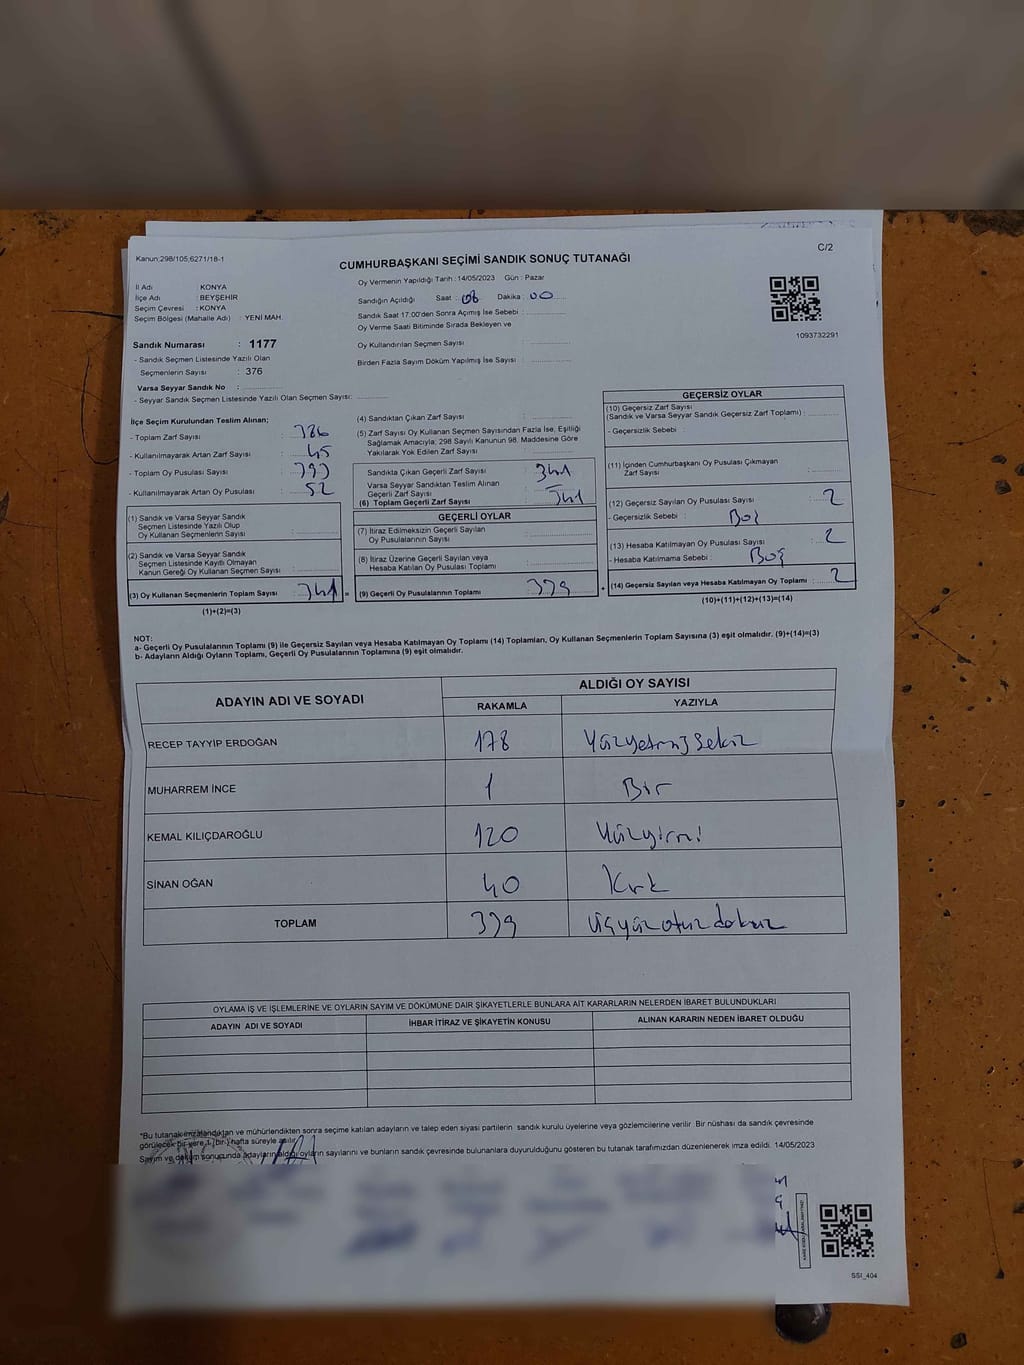 Kanun;298/105;6271/18-1
C/2
CUMHURBAŞKANI SEÇİMİ SANDIK SONUÇ TUTANAĞI
İl Adı : KONYA
İlçe Adı : BEYŞEHİR
Seçim Çevresi : KONYA
Seçim Bölgesi (Mahalle Adı) : YENİ MAH.
Oy Vermenin Yapıldığı Tarih : 14/05/2023 Gün : Pazar
Sandığın Açıldığı Saat : 08 Dakika : 00
Sandık Saat 17.00'den Sonra Açılmış İse Sebebi :
Oy Verme Saati Bitiminde Sırada Bekleyen ve
Oy Kullandırılan Seçmen Sayısı :
Birden Fazla Sayım Döküm Yapılmış İse Sayısı :
1093732291
Sandık Numarası : 1177
- Sandık Seçmen Listesinde Yazılı Olan
Seçmenlerin Sayısı : 376
Varsa Seyyar Sandık No :
- Seyyar Sandık Seçmen Listesinde Yazılı Olan Seçmen Sayısı:
İlçe Seçim Kurulundan Teslim Alınan;
- Toplam Zarf Sayısı :
- Kullanılmayarak Artan Zarf Sayısı : 45
- Toplam Oy Pusulası Sayısı : 393
- Kullanılmayarak Artan Oy Pusulası : 52
(1) Sandık ve Varsa Seyyar Sandık
Seçmen Listesinde Yazılı Olup
Oy Kullanan Seçmenlerin Sayısı :
(2) Sandık ve Varsa Seyyar Sandık
Seçmen Listesinde Kayıtlı Olmayan
Kanun Gereği Oy Kullanan Seçmen Sayısı :
(3) Oy Kullanan Seçmenlerin Toplam Sayısı : 341 =
(1)+(2)=(3)
(4) Sandıktan Çıkan Zarf Sayısı :
(5) Zarf Sayısı Oy Kullanan Seçmen Sayısından Fazla İse, Eşitliği
Sağlamak Amacıyla; 298 Sayılı Kanunun 98. Maddesine Göre
Yakılarak Yok Edilen Zarf Sayısı :
Sandıkta Çıkan Geçerli Zarf Sayısı : 341
Varsa Seyyar Sandıktan Teslim Alınan
Geçerli Zarf Sayısı : –
(6) Toplam Geçerli Zarf Sayısı : 341
GEÇERLİ OYLAR
(7) İtiraz Edilmeksizin Geçerli Sayılan
Oy Pusulalarının Sayısı :
(8) İtiraz Üzerine Geçerli Sayılan veya
Hesaba Katılan Oy Pusulası Toplamı :
(9) Geçerli Oy Pusulalarının Toplamı : 339 +
GEÇERSİZ OYLAR
(10) Geçersiz Zarf Sayısı
(Sandık ve Varsa Seyyar Sandık Geçersiz Zarf Toplamı) :
- Geçersizlik Sebebi :
(11) İçinden Cumhurbaşkanı Oy Pusulası Çıkmayan
Zarf Sayısı :
(12) Geçersiz Sayılan Oy Pusulası Sayısı : 2
- Geçersizlik Sebebi : Boş
(13) Hesaba Katılmayan Oy Pusulası Sayısı : 2
- Hesaba Katılmama Sebebi : Boş
(14) Geçersiz Sayılan veya Hesaba Katılmayan Oy Toplamı : 2
(10)+(11)+(12)+(13)=(14)
NOT:
a- Geçerli Oy Pusulalarının Toplamı (9) ile Geçersiz Sayılan veya Hesaba Katılmayan Oy Toplamı (14) Toplamları, Oy Kullanan Seçmenlerin Toplam Sayısına (3) eşit olmalıdır. (9)+(14)=(3)
b- Adayların Aldığı Oyların Toplamı, Geçerli Oy Pusulalarının Toplamına (9) eşit olmalıdır.
ADAYIN ADI VE SOYADI
ALDIĞI OY SAYISI
RAKAMLA YAZIYLA
RECEP TAYYİP ERDOĞAN 178 Yüzyetmişsekiz
MUHARREM İNCE 1 Bir
KEMAL KILIÇDAROĞLU 120 Yüzyirmi
SİNAN OĞAN 40 Kırk
TOPLAM 339 üçyüzotuzdokuz
OYLAMA İŞ VE İŞLEMLERİNE VE OYLARIN SAYIM VE DÖKÜMÜNE DAİR ŞİKAYETLERLE BUNLARA AİT KARARLARIN NELERDEN İBARET BULUNDUKLARI
ADAYIN ADI VE SOYADI İHBAR İTİRAZ VE ŞİKAYETİN KONUSU ALINAN KARARIN NEDEN İBARET OLDUĞU
*Bu tutanak imzalandıktan ve mühürlendikten sonra seçime katılan adayların ve talep eden siyasi partilerin sandık kurulu üyelerine veya gözlemcilerine verilir. Bir nüshası da sandık çevresinde
görülecek bir yere 1 (bir) hafta süreyle asılır.
Sayım ve döküm sonucunda adayların aldığı oyların sayılarını ve bunların sandık çevresinde bulunanlara duyurulduğunu gösteren bu tutanak tarafımızdan düzenlenerek imza edildi. 14/05/2023
SSI_404